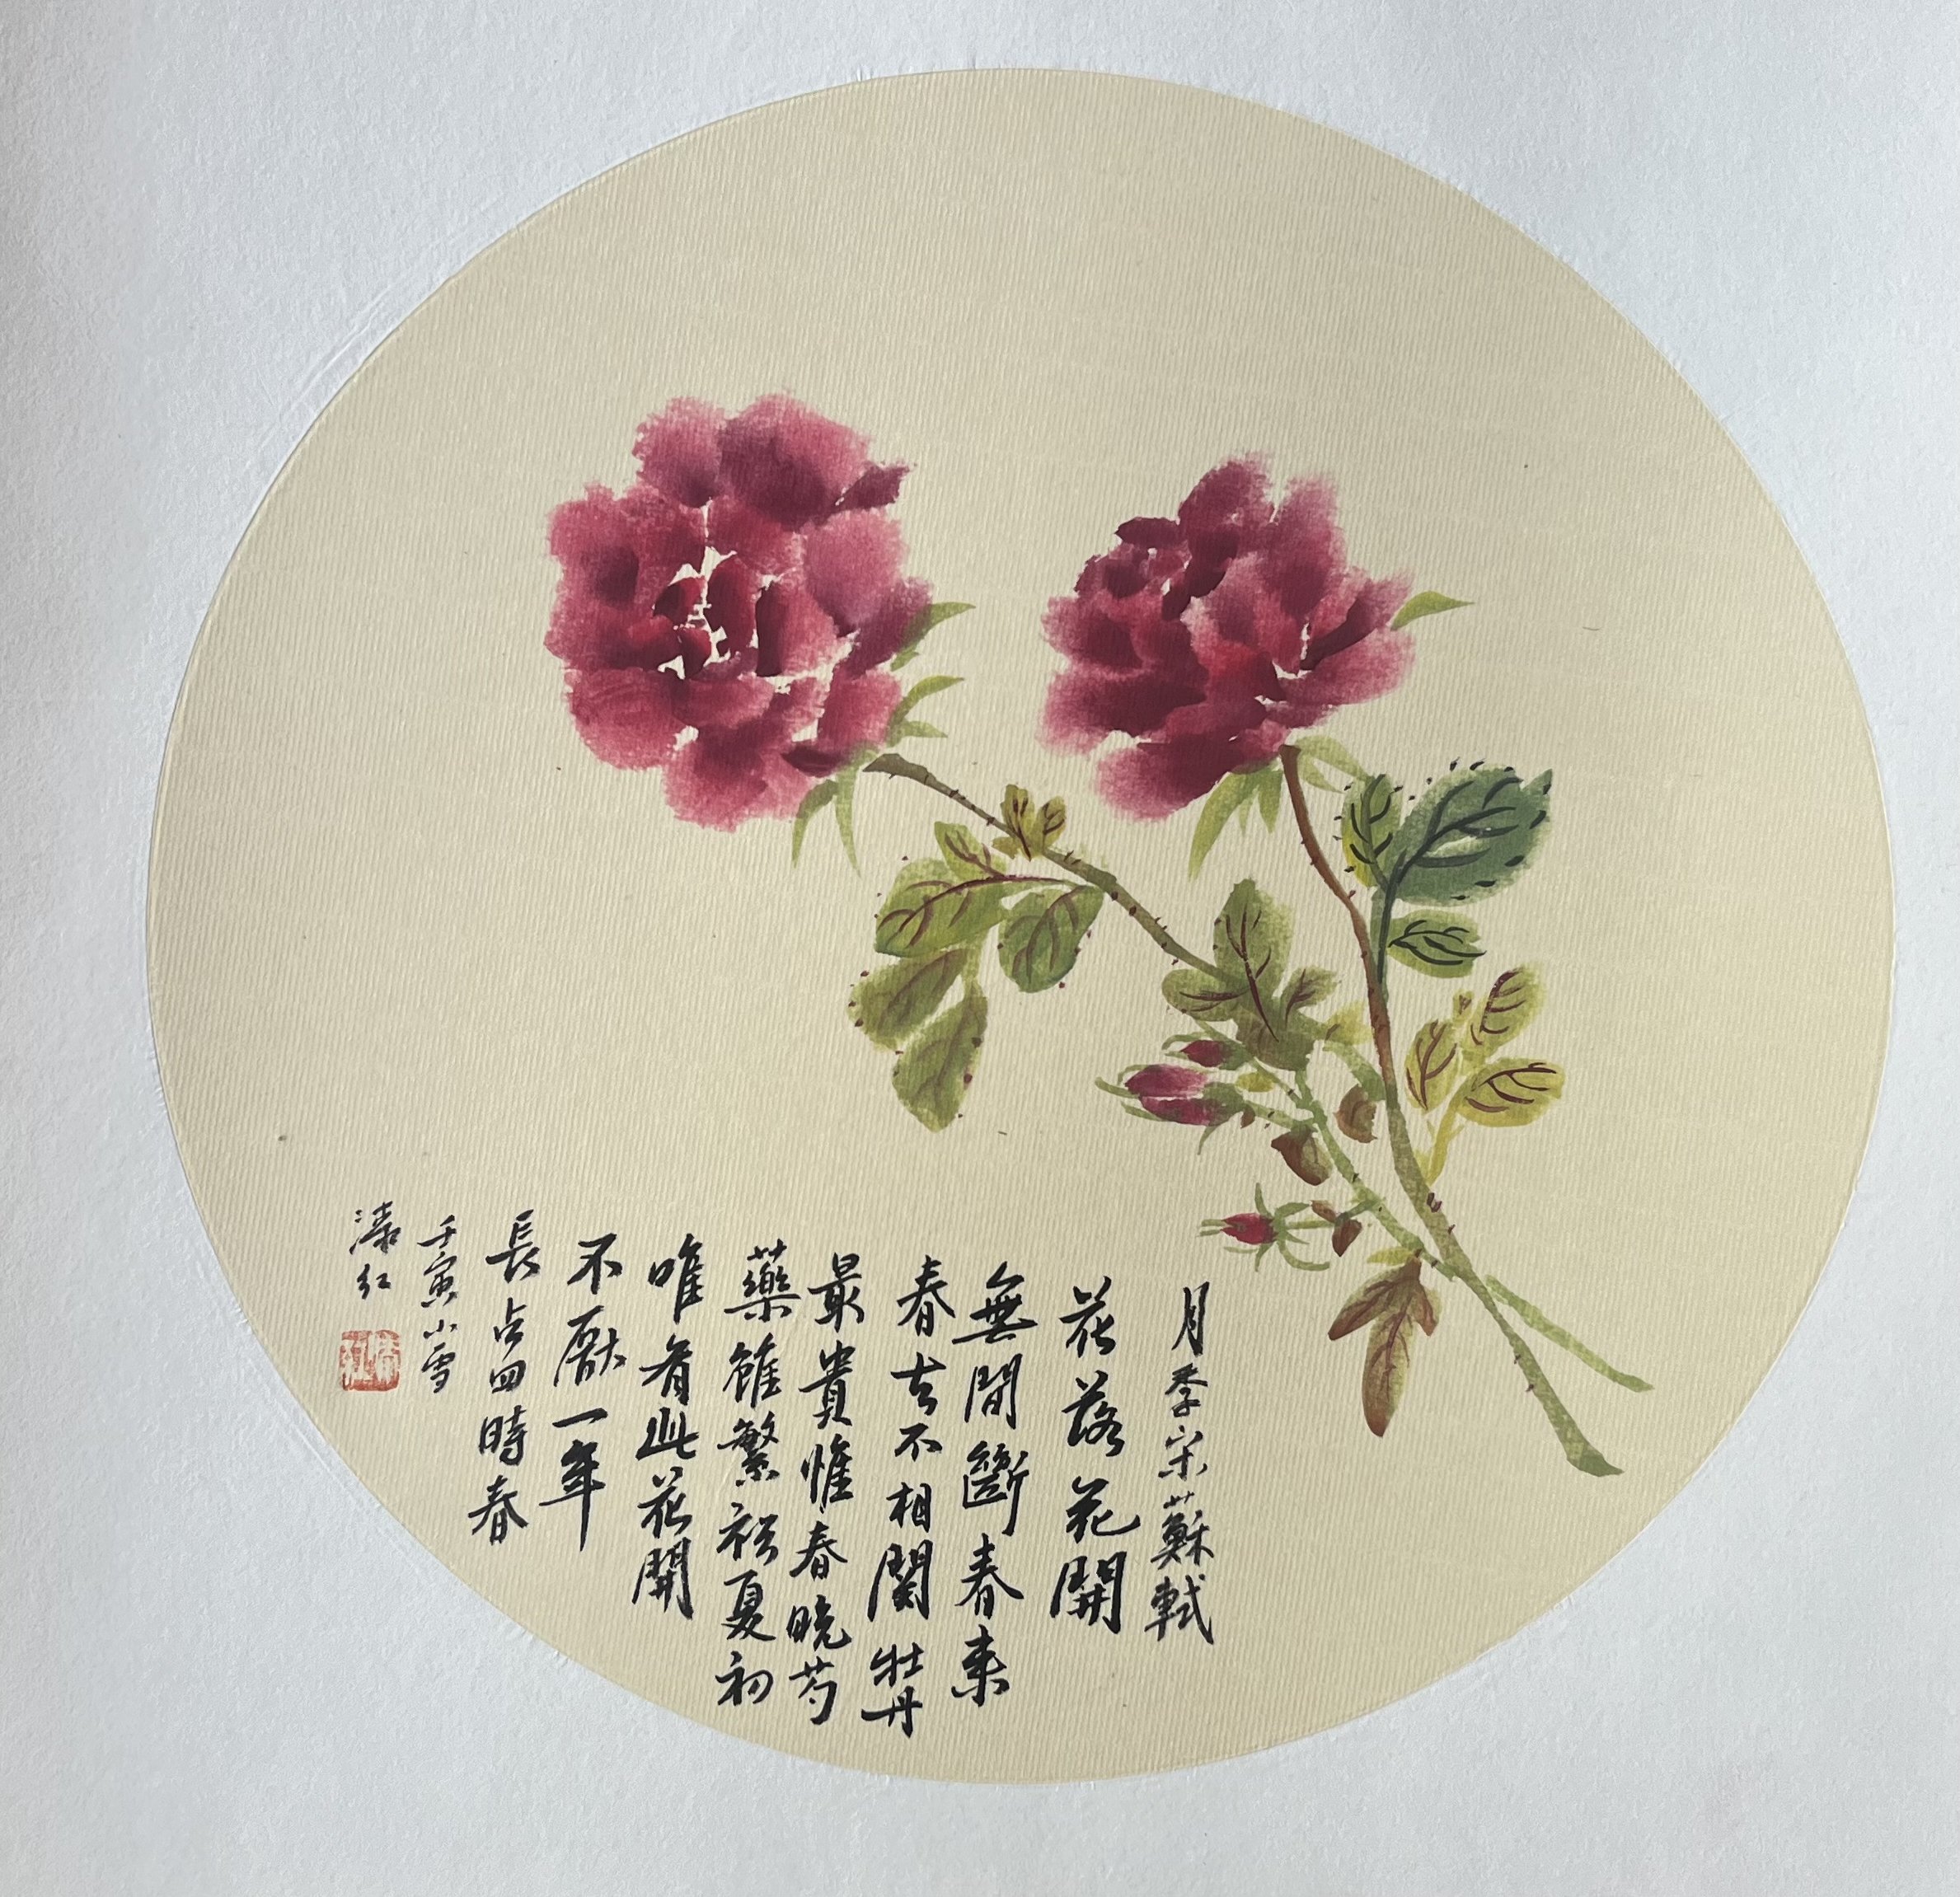 月季宋蘇軾
花落花開
無間斷春来
春去不相關牡丹
最貴惟春晚芍
藥雖繁祗夏初
唯有此花開
不厭一年
長占四時春
壬寅小雪
红